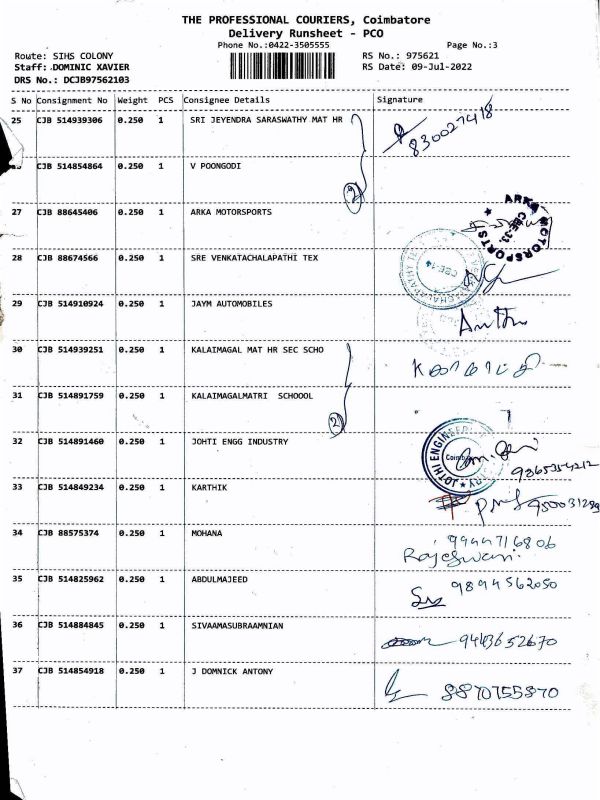 THE PROFESSIONAL COURIERS, Coimbatore
Delivery Runsheet - PCO
Phone No.:0422-3505555 Page No.:3
Route: SIHS COLONY RS No.: 975621
Staff: DOMINIC XAVIER RS Date: 09-Jul-2022
DRS No.: DCJB97562103
S No Consignment No Weight PCS Consignee Details Signature
25 CJB 514939306 0.250 1 SRI JEYENDRA SARASWATHY MAT HR 830027418
CJB 514854864 0.250 1 V POONGODI
2
27 CJB 88645406 0.250 1 ARKA MOTORSPORTS ARKA MOTORSPORTS ★ CBE-33.
28 CJB 88674566 0.250 1 SRE VENKATACHALAPATHI TEX CBE-14
29 CJB 514910924 0.250 1 JAYM AUTOMOBILES
30 CJB 514939251 0.250 1 KALAIMAGAL MAT HR SEC SCHO
31 CJB 514891759 0.250 1 KALAIMAGALMATRI SCHOOOL
2
32 CJB 514891460 0.250 1 JOHTI ENGG INDUSTRY JOTHI ENGINEERING 9865354212
33 CJB 514849234 0.250 1 KARTHIK
34 CJB 88575374 0.250 1 MOHANA 9944716806
Rajeswari.
35 CJB 514825962 0.250 1 ABDULMAJEED 9894562050
36 CJB 514884845 0.250 1 SIVAAMASUBRAAMNIAN 9443652670
37 CJB 514854918 0.250 1 J DOMNICK ANTONY 8870755870